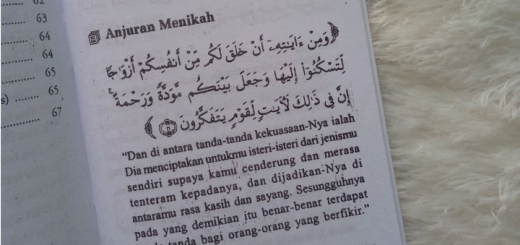 62
63
64
65
65
67
Anjuran Menikah
وَمِنْ ءَايَـٰتِهِۦٓ أَنْ خَلَقَ لَكُم مِّنْ أَنفُسِكُمْ أَزْوَٰجًا
لِّتَسْكُنُوٓا۟ إِلَيْهَا وَجَعَلَ بَيْنَكُم مَّوَدَّةً وَرَحْمَةً ۚ
إِنَّ فِى ذَٰلِكَ لَـَٔايَـٰتٍ لِّقَوْمٍ يَتَفَكَّرُونَ
"Dan di antara tanda-tanda kekuasaan-Nya ialah
Dia menciptakan untukmu isteri-isteri dari jenismu
sendiri supaya kamu cenderung dan merasa
tenteram kepadanya, dan dijadikan-Nya di
antaramu rasa kasih dan sayang. Sesungguhnya
pada yang demikian itu benar-benar terdapat
tanda bagi orang-orang yang berfikir."